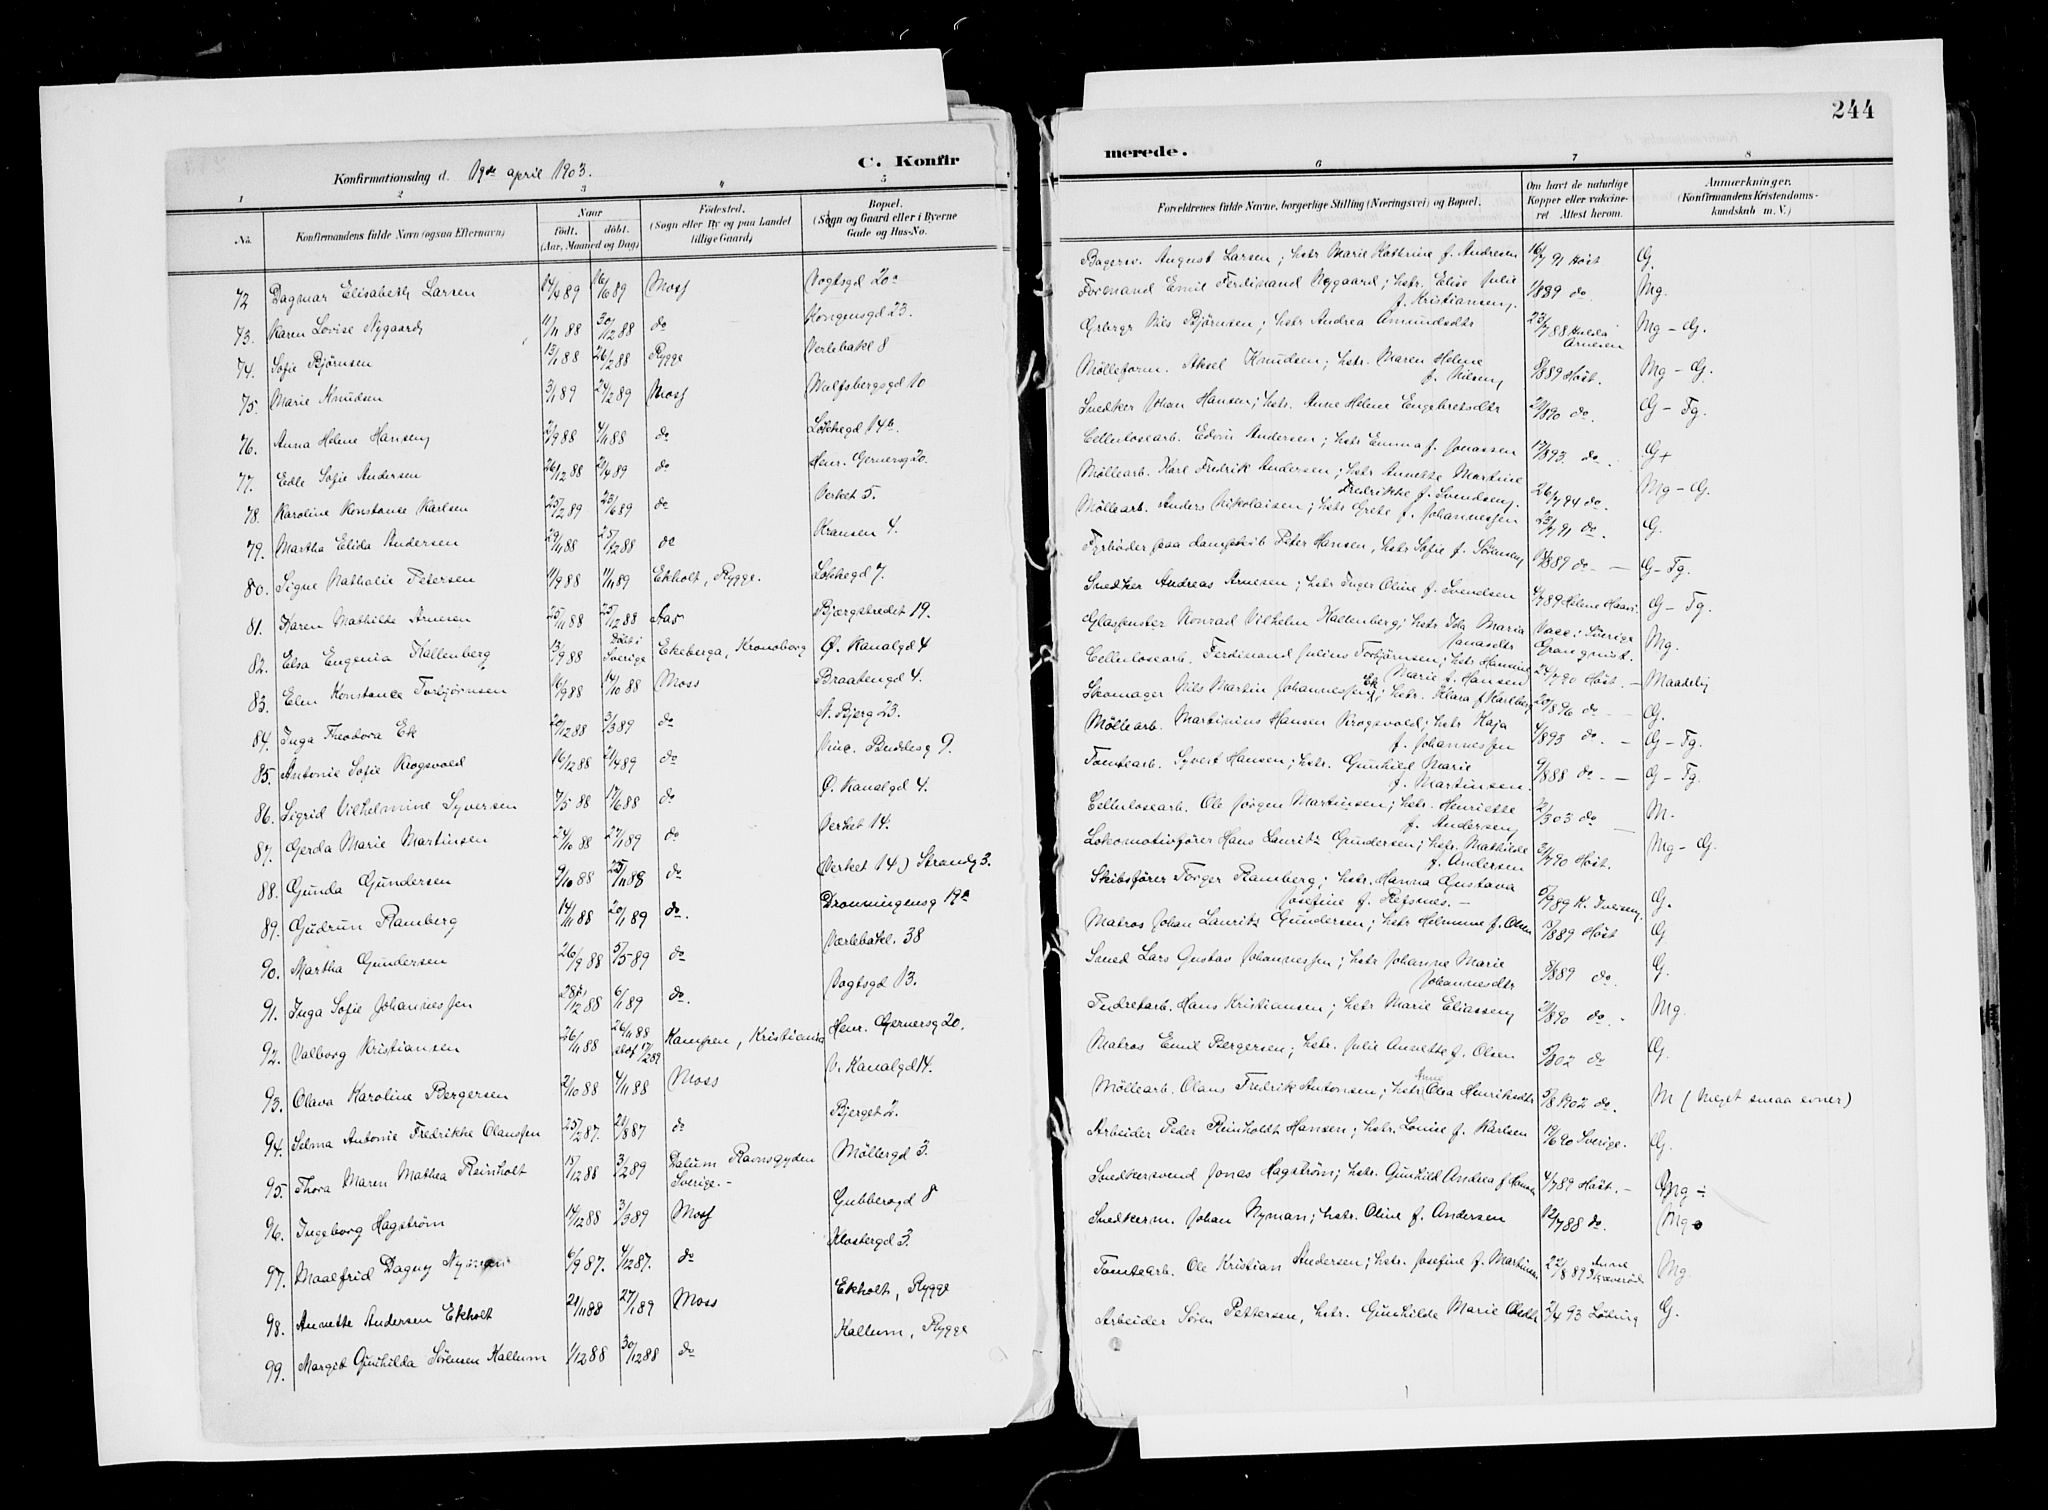 244
C. Konfir
merede.
Konfirmationsdag d. 19de april 1903.
1 2 3 4 5 6 7 8
No.
Konfirmandens fulde Navn (ogsaa Efternavn)
Naar
født. døbt.
(Aar, Maaned og Dag)
Fødested.
(Sogn eller By og paa Landet
tillige Gaard)
Bopæl.
(Sogn og Gaard eller i Byerne
Gade og Hus-No.
Forældrenes fulde Navne, borgerlige Stilling (Næringsvei) og Bopæl.
Om havt de naturlige
Kopper eller vakcine-
ret Attest herom.
Anmærkninger.
(Konfirmandens Kristendoms-
kundskab m. V.)
72 Dagmar Elisabeth Larsen 14/4 89 16/6 89 Moss Vogtsgd 20a Bagersv. August Larsen; hstr Marie Kathrine f. Andresen 16/7 91 Høst G.
73. Karen Lovise Nygaard 11/11 88 30/12 88 do Kongensgd 23. Formand Emil Ferdinand Nygaard; hstr. Elise Julie
f. Kristiansen 1/8 89 do. Mg.
74. Sofie Bjørnsen 13/1 88 26/2 88 Rygge Verlebakl 8 Grbergr Nils Bjørnsen; hstr Andrea Amundsdtr 23/7 88 Hulda
Arnesen Mg - G.
75. Marie Knudsen 3/1 89 24/2 89 Moss Wulfsbergsgd 10 Mølleform. Aksel Knudsen; hstr. Maren Helene
f. Nilsen 8/8 89 Høst. Mg - G.
76. Anna Helene Hansen 2/9 88 4/11 88 do Løkkegd 14b. Snedker Johan Hansen; hstr. Anne Helene Engebretsdtr 29/8 90 do. G - Tg.
77. Edle Sofie Andersen 26/12 88 21/4 89 do Henr. Gernersg 20. Cellulosearb. Edvin Andersen; hstr Emma f. Jonassen 17/8 93 do G+
78. Karoline Konstance Karlsen 25/2 89 23/6 89 do Verket 5. Møllearb. Karl Fredrik Andersen; hstr Annette Martine
Fredrikke f. Svendsen 26/7 94 do. Mg - G.
79. Martha Elida Andersen 29/11 88 25/12 88 do Kransen 4. Møllearb. Anders Nikolaisen; hstr Grete f. Johannessen 23/7 91 do. G.
80. Signe Nathalie Petersen 11/9 88 11/11 89 Ekholt, Rygge. Løkkegd 7. Fyrbøder paa dampskib Peter Hansen, hstr Sofie f. Sørensen 14/8 89 do. — G - Tg.
81. Karen Mathilde Arnesen 25/11 88 25/12 88 Aas Bjergstredet 19. Snedker Andreas Arnesen; hstr Inger Oline f. Svendsen 4/7 89 Helene G - Tg.
82. Elsa Eugenia Kallenberg 13/9 88 Døbt i
Sverige Ekeberga, Kronoborg Ø. Kanalgd 4 Glaspuster Konrad Vilhelm Kallenberg; hstr Ida Maria
Vacc i Sverige
Granqvist. Mg.
83. Elen Konstance Torbjørnsen 16/9 88 14/10 88 Moss Braatengd 4. Cellulosearb. Ferdinand Julius Torbjørnsen; hstr Hansine
Marie f. Hansen 24/7 90 Høst. - Maadelig
84. Inga Theodora Ek 20/12 88 3/3 89 do N. Bjerg 23. Skomager Nils Martin Johannessen Ek; hstr. Klara f. Karlberg 20/8 96 do — G.
85. Antonie Sofie Krogsvold 16/12 88 21/4 89 do Vinc. Buddesg 9. Møllearb. Martinius Hansen Krogsvold; hstr Kaja
f. Johannessen 4/8 93 do. — G - Tg.
86. Sigrid Vilhelmine Syversen 7/5 88 17/6 88 do Ø. Kanalgd 4. Tomtearb. Syvert Hansen; hstr. Gunhild Marie
f. Martinsen. 9/8 88 do. — G - Tg.
87. Gerda Marie Martinsen 24/10 88 27/1 89 do Verket 14. Cellulosearb. Ole Jørgen Martinsen; hstr. Henriette
f. Andersen 2/3 03 do — M.
88. Gunda Gundersen 9/10 88 25/11 88 do (Verket 14) Strandg 3. Lokomotivfører Hans Lauritz Gundersen; hstr. Mathilde
f. Andersen 31/7 90 Høst. Mg - G.
89. Gudrun Ramberg 14/11 88 20/1 89 do. Dronningensg 19a Skibsfører Torger Ramberg; hstr. Hanna Gustava
Josefine f. Refsnes. — 5/9 89 K. Iversen. G.
90. Martha Gundersen 26/9 88 5/5 89 do Værlebakl. 38 Matros Johan Lauritz Gundersen; hstr Helmine f. Olsen 13/8 89 Høst G.
91. Inga Sofie Johannessen 28/12 88 6/1 89 do. Vogtsgd 13. Smed Lars Gustav Johannessen; hstr Johanne Marie
Johannesdtr 8/8 89 do. G.
92. Valborg Kristiansen 26/11 88 26/11 88
stadf 17/2 89 Kampen, Kristiania Henr. Gernersg 20. Pudretarb. Hans Kristiansen; hstr Marie Eliassen 21/8 90 do. Mg.
93. Olava Karoline Bergersen 2/10 88 4/11 88 Moss V. Kanalgd 14. Matros Emil Bergersen; hstr. Julie Annette f. Olsen 5/3 02 do G.
94. Selma Antonie Fredrikke Olaussen 25/2 87. 21/8 87 do Bjerget 2. Møllearb. Olaus Fredrik Antonsen; hstr Anne Olea Henriksdtr 5/8 1902 do. M (meget smaa evner)
95. Thora Maren Mathea Reinholt 15/12 88 3/2 89 Dalum Ravnsgyden
Sverige. - Møllergd 3. Arbeider Peder Reinholdt Hansen; hstr. Louise f. Karlsen 19/6 90 Sverige. G.
96. Ingeborg Hagstrøm 14/12 88 3/3 89 Moss Gubberogd 8 Snedkersvend Jonas Hagstrøm; hstr. Gunhild Andrea f. 4/7 89 Høst. - Mg ÷
97. Maalfrid Dagny Nyman 6/9 87. 4/12 87. do Klostergd 3. Snedkerm. Johan Nyman; hstr. Oline f. Andersen 12/7 88 do. Mg
98. Annette Andersen Ekholt 21/11 88 27/1 89 Moss Ekholt, Rygge Tomtearb. Ole Kristian Andersen; hstr. Josefine f. Martinsen 22/8 89 Anne
Mg
99. Margit Gunhilda Sørensen Kallum 1/12 88 30/12 88 do Kallum, Rygge Arbeider Søren Pettersen, hstr. Gunhilde Marie Olsdtr 2/4 93 Løding G.